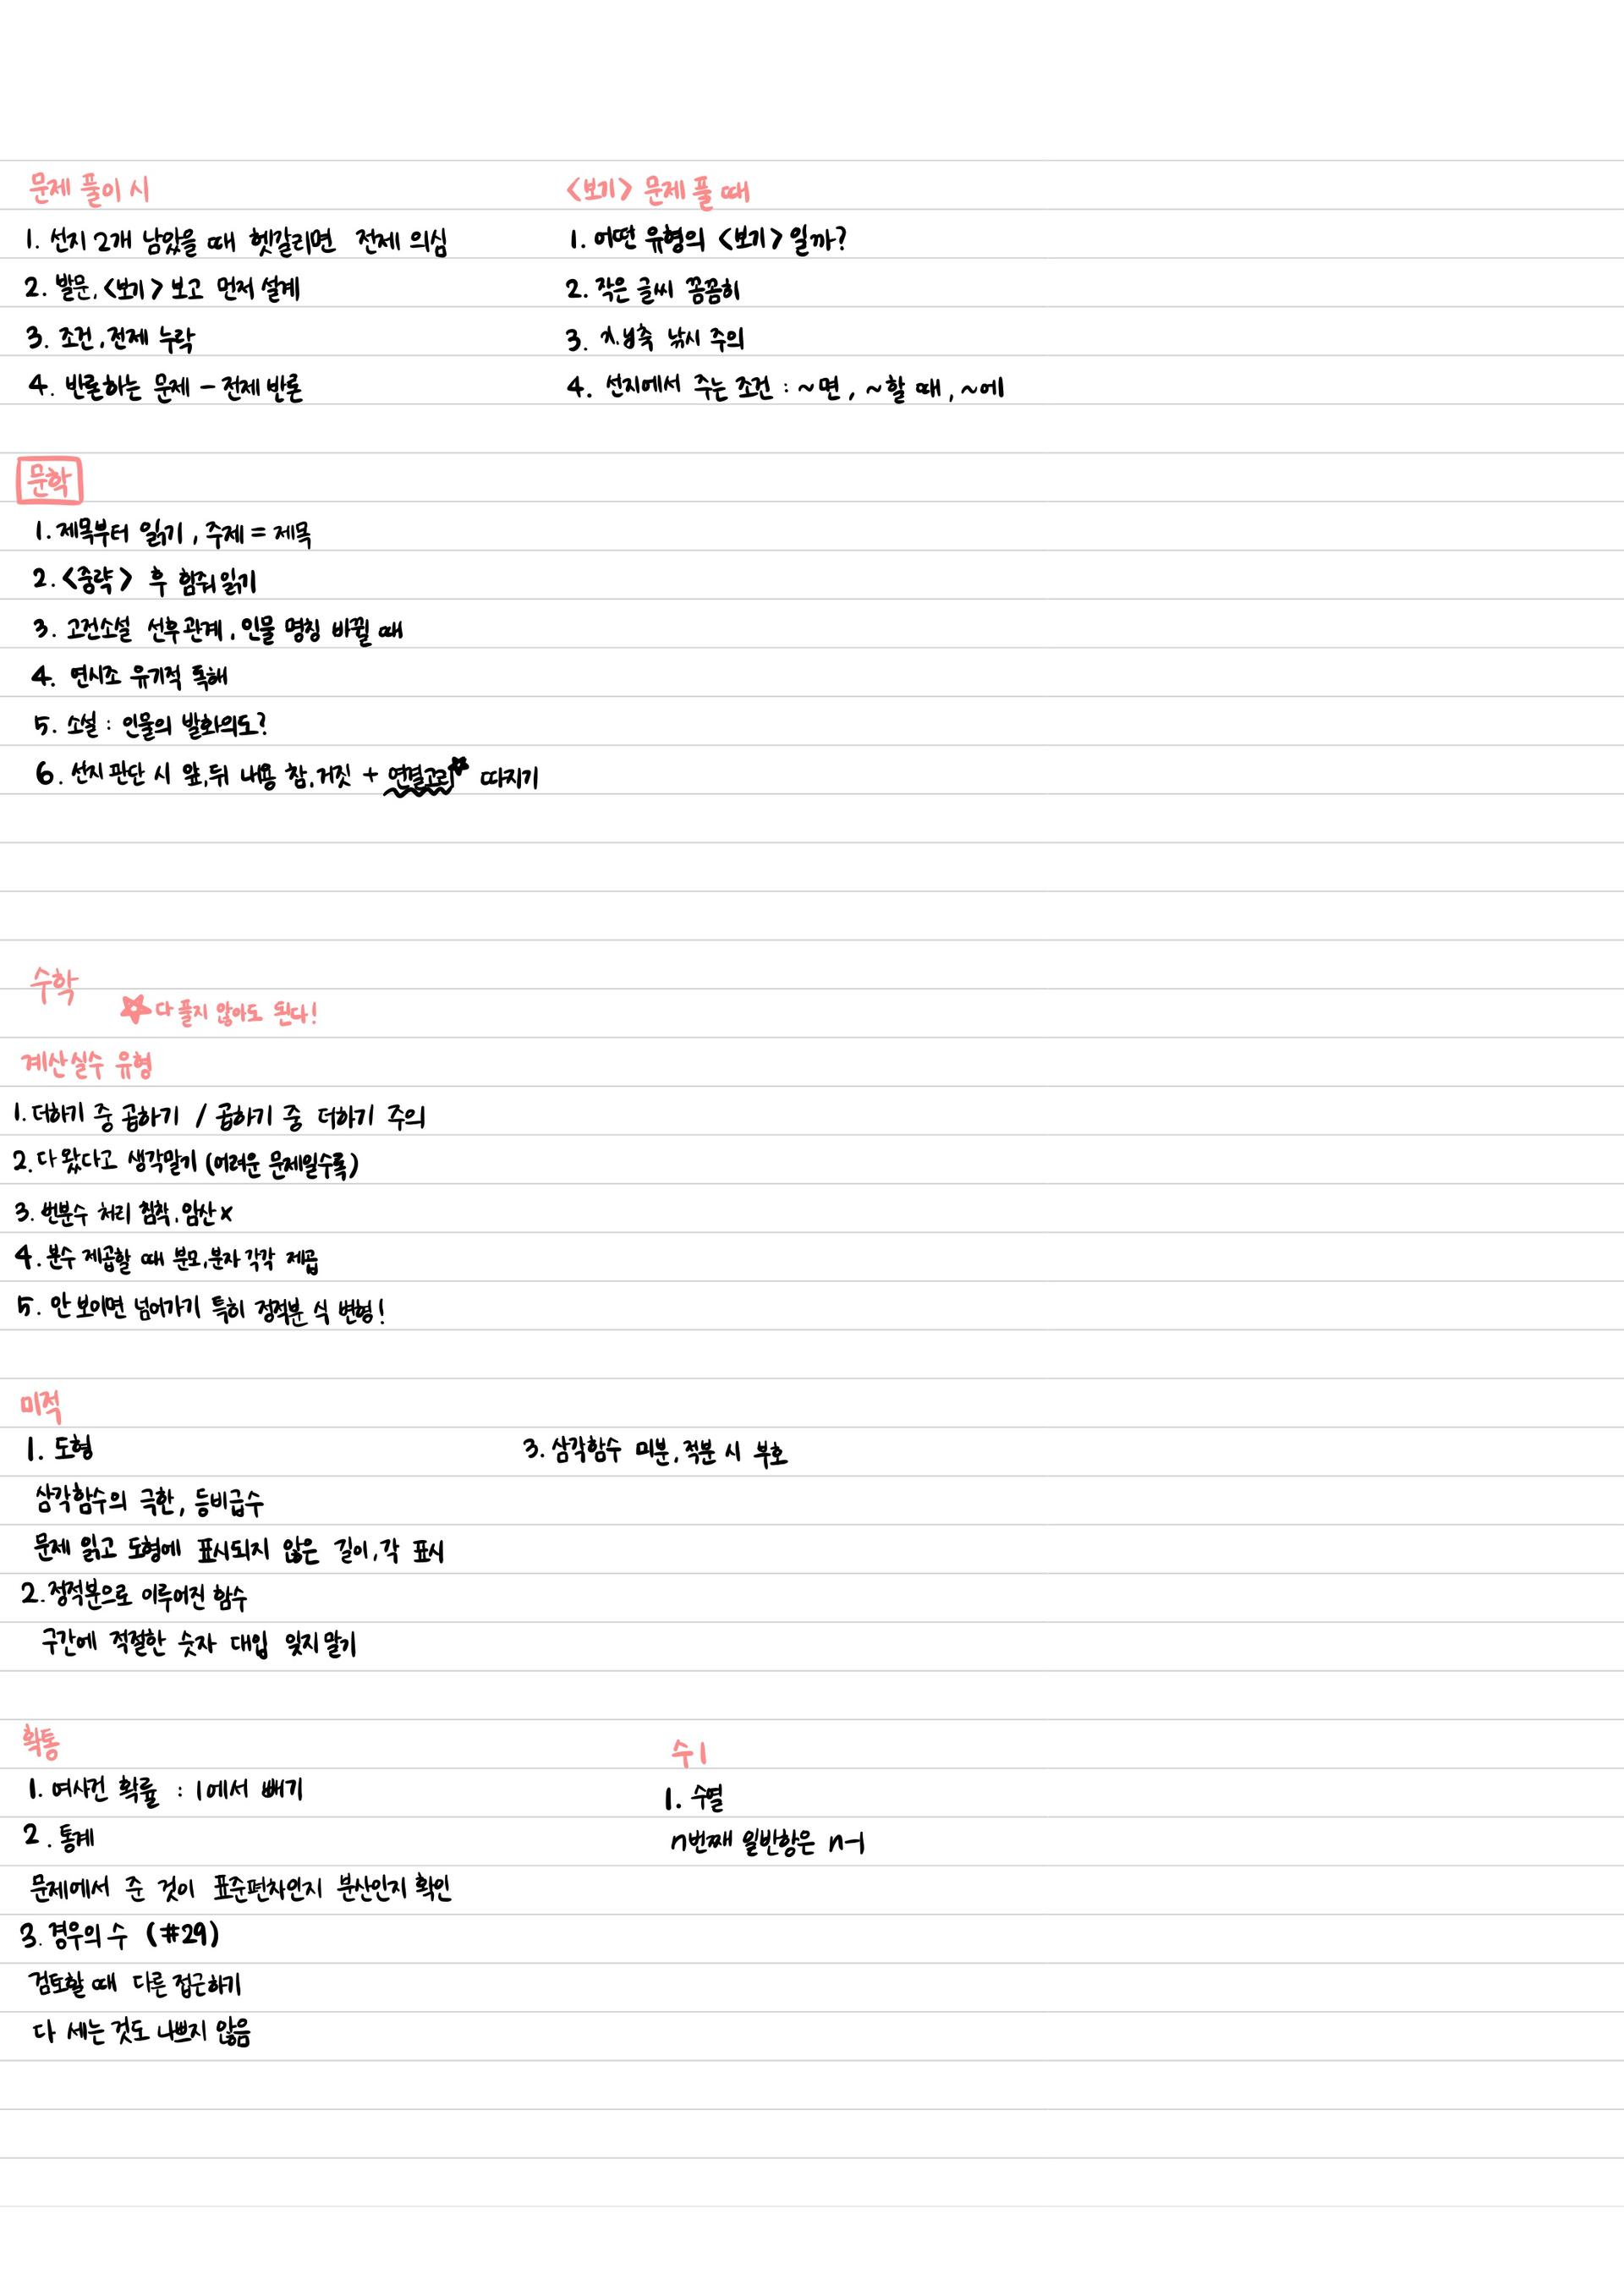 문제 풀이 시
1. 선지 2개 남았을 때 헷갈리면 전제 의심
2. 발문, <보기> 보고 먼저 설계
3. 조건, 전제 누락
4. 반론하는 문제 - 전제 반론
<보기> 문제 풀 때
1. 어떤 유형의 <보기> 일까?
2. 작은 글씨 꼼꼼히
3. x, y축 낚시 주의
4. 선지에서 주는 조건 : ~면, ~할 때, ~에
문학
1. 제목부터 읽기, 주제 = 제목
2. <중략> 후 힘줘 읽기
3. 고전소설 선후관계, 인물 명칭 바뀔 때
4. 연시조 유기적 독해
5. 소설 : 인물의 발화의도?
6. 선지 판단 시 앞, 뒤 내용 참, 거짓 + 연결고리☆ 따지기
수학
☆다 풀지 않아도 된다!
계산실수 유형
1. 더하기 중 곱하기 / 곱하기 중 더하기 주의
2. 다 왔다고 생각말기 (어려운 문제일수록)
3. 번분수 처리 침착, 암산 x
4. 분수 제곱할 때 분모, 분자 각각 제곱
5. 안 보이면 넘어가기 특히 정적분 식 변형!
미적
1. 도형
삼각함수의 극한, 등비급수
문제 읽고 도형에 표시되지 않은 길이, 각 표시
2. 정적분으로 이루어진 함수
구간에 적절한 숫자 대입 잊지 말기
3. 삼각함수 미분, 적분 시 부호
확통
1. 여사건 확률 : 1에서 빼기
2. 통계
문제에서 준 것이 표준편차인지 분산인지 확인
3. 경우의 수 (#29)
검토할 때 다른 접근하기
다 세는 것도 나쁘지 않음
수1
1. 수열
n번째 일반항은 n-1